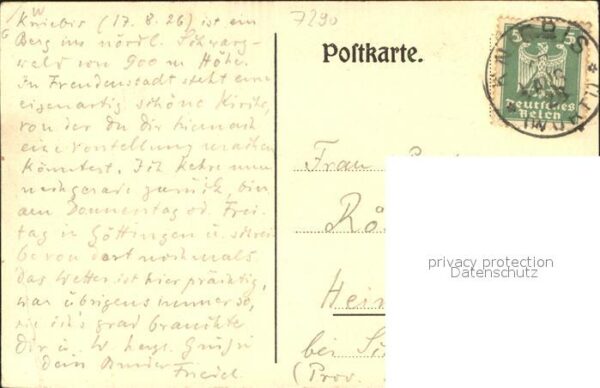 Kniebis (17.8.26) ist ein
Berg im nördl. Schwarz-
wald von 900 m Höhe.
In Freudenstadt steht eine
eigenartig schöne Kirche,
von der Du Dir hienach
eine Vorstellung machen
könntest. Ich kehre nun
zurück, bin
am Donnerstag od. Frei-
tag in Göttingen u. schrei-
be von dort nochmals.
Das Wetter ist hier prächtig,
war übrigens immer so,
wie ich's grad brauchte
Dir u. W. herzl. Grüße
Dein Bruder
7290
Postkarte.
5
KNIEBIS
Deutsches
Reich
Frau
Rö
Hein
bei
(Prov.
privacy protection
Datenschutz